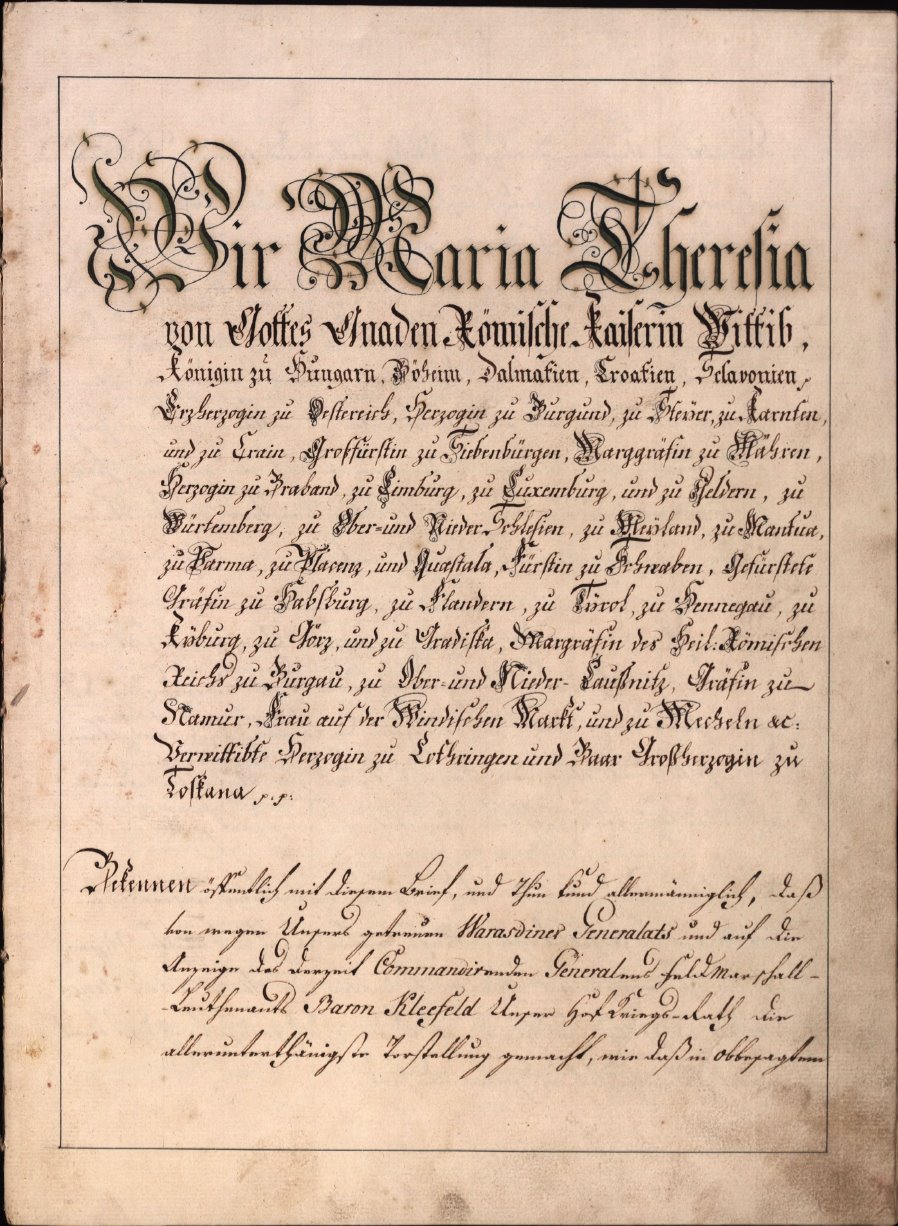 Wir Maria Theresia
von Gottes Gnaden Römische Kaiserin Wittib,
Königin zu Hungarn, Böheim, Dalmatien, Croatien, Sclavonien,
Erzherzogin zu Oestereich, Herzogin zu Burgund, zu Steyer, zu Kärnten,
und zu Crain, Großfürstin zu Siebenbürgen, Marggräfin zu Mähren,
Herzogin zu Braband, zu Limburg, zu Luxemburg, und zu Geldern, zu
Würtemberg, zu Ober- und Nieder Schlesien, zu Meyland, zu Mantua,
zu Parma, zu Placenz, und Quastala, Fürstin zu Schwaben, Gefürstete
Gräfin zu Habsburg, zu Flandern, zu Tÿrol, zu Hennegau, zu
Kÿburg, zu Görz, und zu Gradiska, Margräfin des Heil: Römischen
Reichs zu Burgau, zu Ober- und Nieder- Laußnitz, Gräfin zu
Namur, Frau auf der Windischen Markt, und zu Mecheln &c:
Verwittibte Herzogin zu Lothringen und Baar Großherzogin zu
Toskana p.p:
Bekennen öffentlich mit diesem Brief, und Thun kund allermänniglich, daß
von wegen Unsers getreuen Warasdiner Generalats und auf die
Anzeige des derzeit Commandirenden Generalens Feld Marschall-
-Leuthenants Baron Kleefeld Unser Hof Kriegs-Rath die
allerunterthänigste Vorstellung gemacht, wie daß in obbesagtem